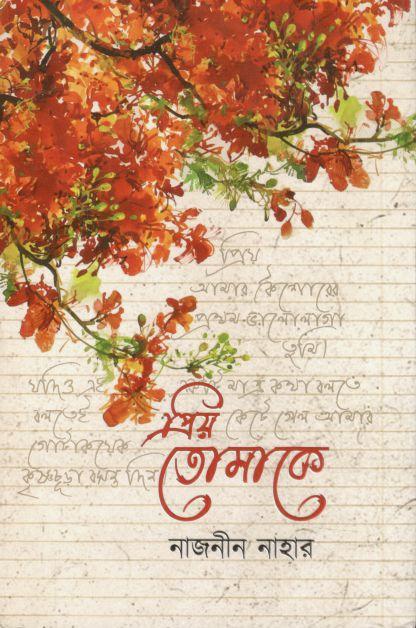 প্রিয়
আমার কৈশোরের
প্রথম ভালোলাগা
তুমি।
যদিও এই কটা মাত্র কথা বলতে
বলতেই কেটে গেল আমার
গোটাকয়েক
কৃষ্ণচূড়া বসন্ত দিন
প্রিয়
তোমাকে
নাজনীন নাহার